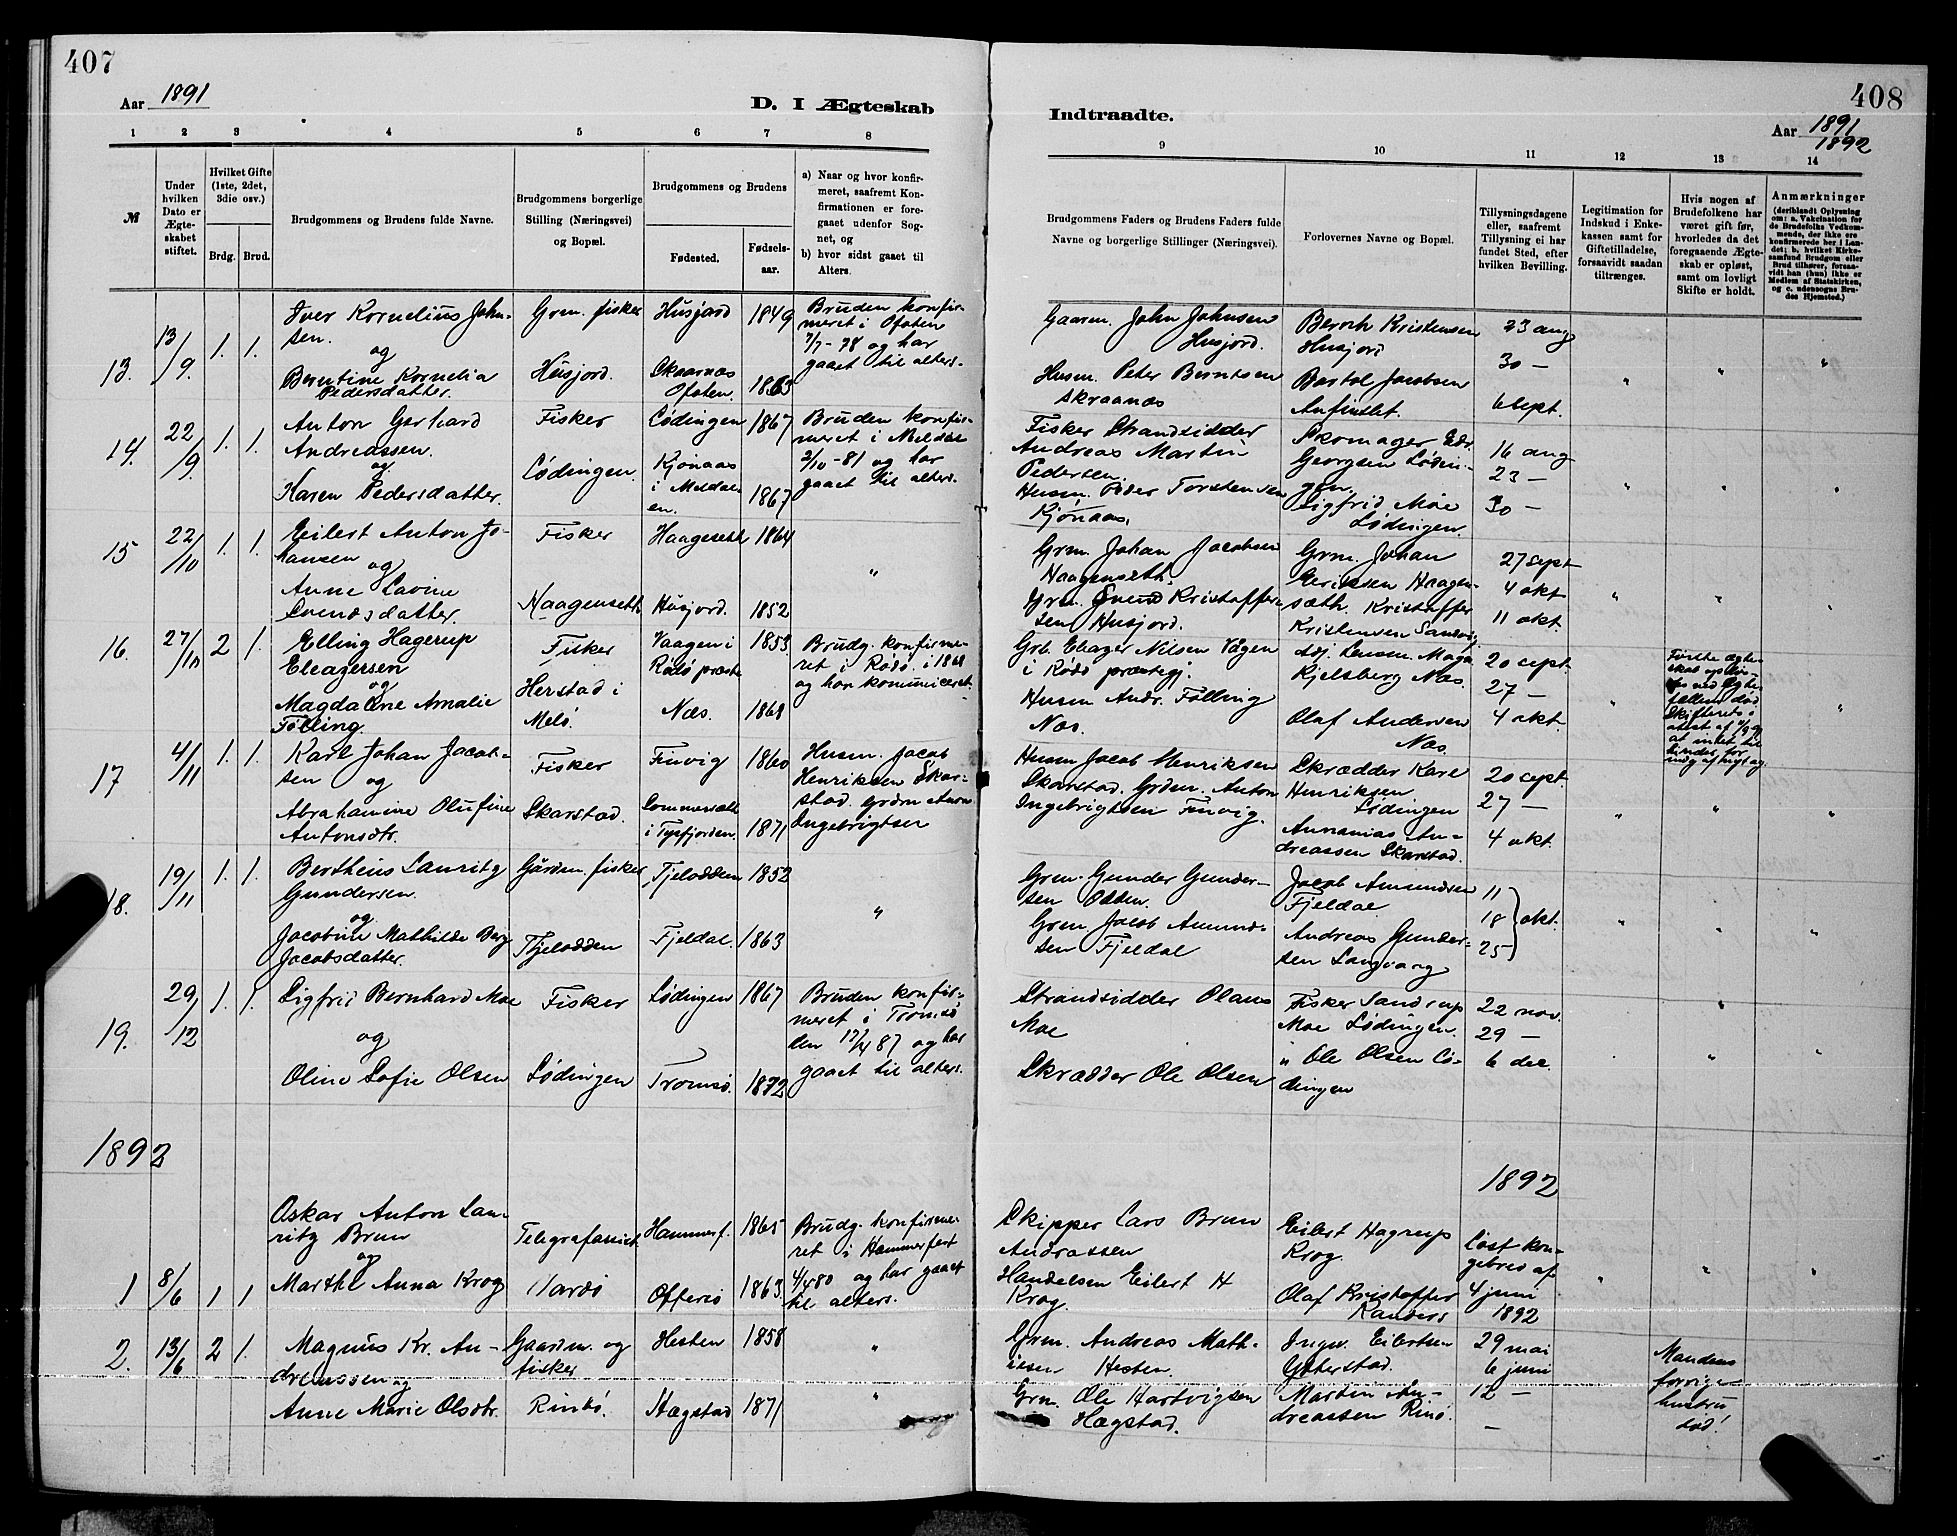 407
Aar 1891
D. I Ægteskab
1 2 3 4 5 6 7 8
№
Under hvilken Dato er Ægteskabet stiftet.
Hvilket Gifte (1ste, 2det, 3die osv.)
Brdg. Brud.
Brudgommens og Brudens fulde Navne.
Brudgommens borgerlige Stilling (Næringsvei) og Bopæl.
Brudgommens og Brudens
Fødested. Fødselsaar.
a) Naar og hvor konfirmeret, saafremt Konfirmationen er foregaaet udenfor Sognet, og
b) hvor sidst gaaet til Alters.
13. 13/9. 1. 1.
Iver Kornelius Johnsen.
og
Berntine Kornelia
Pedersdatter.
Grm. fisker
Husjord.
Husjord 1849
Skaarnæs
Ofoten. 1863
Bruden konfirmeret i Ofoten
7/7-78 og har
gaaet til alters.
14. 22/9. 1. 1.
Anton Gerhard
Andreassen.
og
Karen Pedersdatter.
Fisker
Lødingen.
Lødingen 1867
Kjønaas
i Meldalen. 1867
Bruden konfirmeret i Meldal
2/10-81 og har
gaaet til alters.
15 22/10 1. 1.
Eilert Anton Johansen
og
Anne Lavine
Svendsdatter.
Fisker
Haagenseth
Haagenseth 1864
Husjord. 1852
"
16. 27/10 2 1.
Elling Hagerup
Eleazersen
og
Magdalene Amalie
Følling.
Fisker
Herstad i
Melø.
Vaagen i
Rødø præste 1853
Næs. 1868
Brudg. konfirmeret i Rødø i 1868
og har kommuniceret.
17 4/11 1. 1.
Karl Johan Jacobsen
og
Abrahamine Olufine
Antonsdtr.
Fisker
Skarstad.
Finvig 1860
Sommersæth
i Tysfjorden. 1871
Husm. Jacob
Henriksen Skarstad. Grdm Anton
Ingebrigtsen
18. 19/11 1. 1.
Bertheus Lauritz
Gundersen.
og
Jacobine Mathilde Berg
Jacobsdatter.
Gårdm. fisker
Fjelodden
Fjelodden 1852
Fjeldal. 1863
"
19. 29/12 1. 1.
Sigfrid Bernhard Moe
og
Oline Sofie Olsen
Fisker
Lødingen
Lødingen 1867
Tromsø. 1872
Bruden konfirmeret i Tromsø
den 17/4 87 og har
gaaet til alters.
1892
1 8/6 1 1
Oskar Anton Lauritz Brun
og
Marthe Anna Krog
Telegrafassist.
Vardø
Hammerf. 1865
Offersø 1863.
Brudg. konfirmeret i Hammerfest
4/4 80 og har gaaet
til alters.
2. 13/6 2 1.
Magnus Kr. Andreassen og
Anne Marie Olsdtr.
Gaardm. og
fisker
Rinbø.
Hesten 1858
Hægstad 1871
"
"
408
Indtraadte.
Aar 1891
1892
9 10 11 12 13 14
Brudgommens Faders og Brudens Faders fulde Navne og borgerlige Stillinger (Næringsvei).
Forlovernes Navne og Bopæl.
Tillysningsdagene eller, saafremt Tillysning ei har fundet Sted, efter hvilken Bevilling.
Legitimation for Indskud i Enkekassen samt for Giftetilladelse, forsaavidt saadan tiltrænges.
Hvis nogen af Brudefolkene har været gift før, hvorledes da det foregaaende Ægteskab er opløst, samt om lovligt Skifte er holdt.
Anmærkninger
(deriblandt Oplysning om: a. Vakcination for de Brudefolks Vedkommende, der ikke ere konfirmerede her i Landet; b. hvilket Kirkesamfund Brudgom eller Brud tilhører, forsaavidt han (hun) ikke er Medlem af Statskirken, og c. udensogns Brudes Hjemsted.)
Gaarm. John Johnsen
Husjord.
Husm. Peter Berntsen
Skraanæs
Kristensen
Husjord
Bartol Jacobsen
23 aug
30 —
6 Sept.
Fisker Strandsidder
Andreas Martin
Pedersen.
Husm. Peder Torstensen
Kjønaas.
Skomager Edv.
Georgsen Lødingen.
Sigfrid Moe
Lødingen.
16 aug
23 —
30 —
Grm. Johan Jacobsen
Haagenseth.
Grm. Svend Kristoffersen Husjord.
Grm. Johan
Eriksen Haagensæth. Kristoffer
Kristensen
27 sept
4 okt
11 okt.
Grb. Eleazer Nilsen Vågen
i Rødø præstegj.
Husm Andr. Følling
Næs.
Kjelsberg Næs.
Olaf Andersen
Næs.
20 sept.
27 —
4 okt.
Første ægteskab
død
Husm Jacob Henriksen
Skarstad. Grdm. Anton
Ingebrigtsen Finvig.
Skrædder Karl
Henriksen
Lødingen
Annanias Andreassen Skarstad.
20 sept.
27 —
4 okt.
Grm. Gunder Gundersen Odden.
Grm. Jacob Amundsen Fjeldal
Jacob Amundsen
Fjeldal.
Andreas Gundersen Langvang
11
18 } okt.
25
Strandsidder Olaus
Moe
Skrædder Ole Olsen
Fisker Sandrup
Moe Lødingen.
" Ole Olsen Lødingen
22 nov.
29 —
6 dec.
1892
Skipper Lars Brun
Andrassen
Handelsm Eilert H
Krog.
Eilert Hagrup
Krog.
Olaf Kristoffer
Randers
Løst kongebrev af
4 juni
1892
Grm. Andreas Mathisen Hesten.
Grm. Ole Hartvigsen
Hægstad.
Ingv. Eilertsen
Ytterstad.
Martin Andreassen Rinø.
29 mai
6 juni
12 —
—
Mandens
forrige
hustru
død!